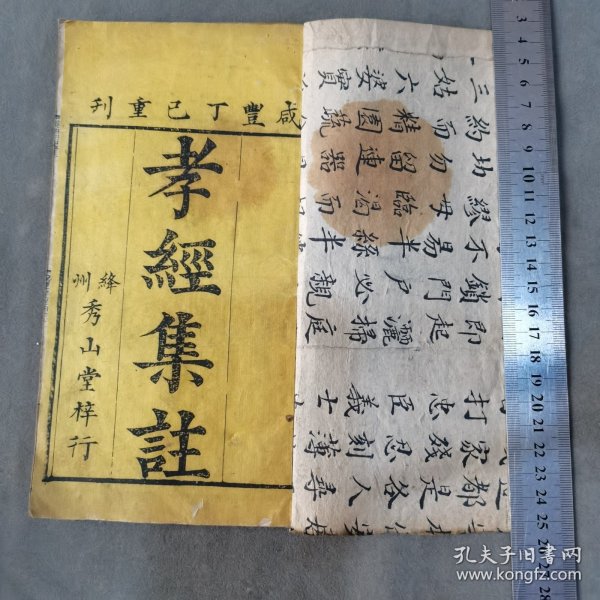 咸豐丁巳重刊
孝經集註
絳州
秀山堂梓行
即起
庭
掃
打家都
不鎖門
灑
忠發是
功繆
易戶
必
臣思各
三約勿毋半
絲
義刻人
姑而
臨渴
親
士薄尋
六
精留
連
而半
婆
園器
實
疏
孔夫子旧书网
www.kongfz.com
3
4
5
6
7
8
9
10
11
12
13
14
15
16
17
18
19
20
21
22
23
24
25
26
27
28